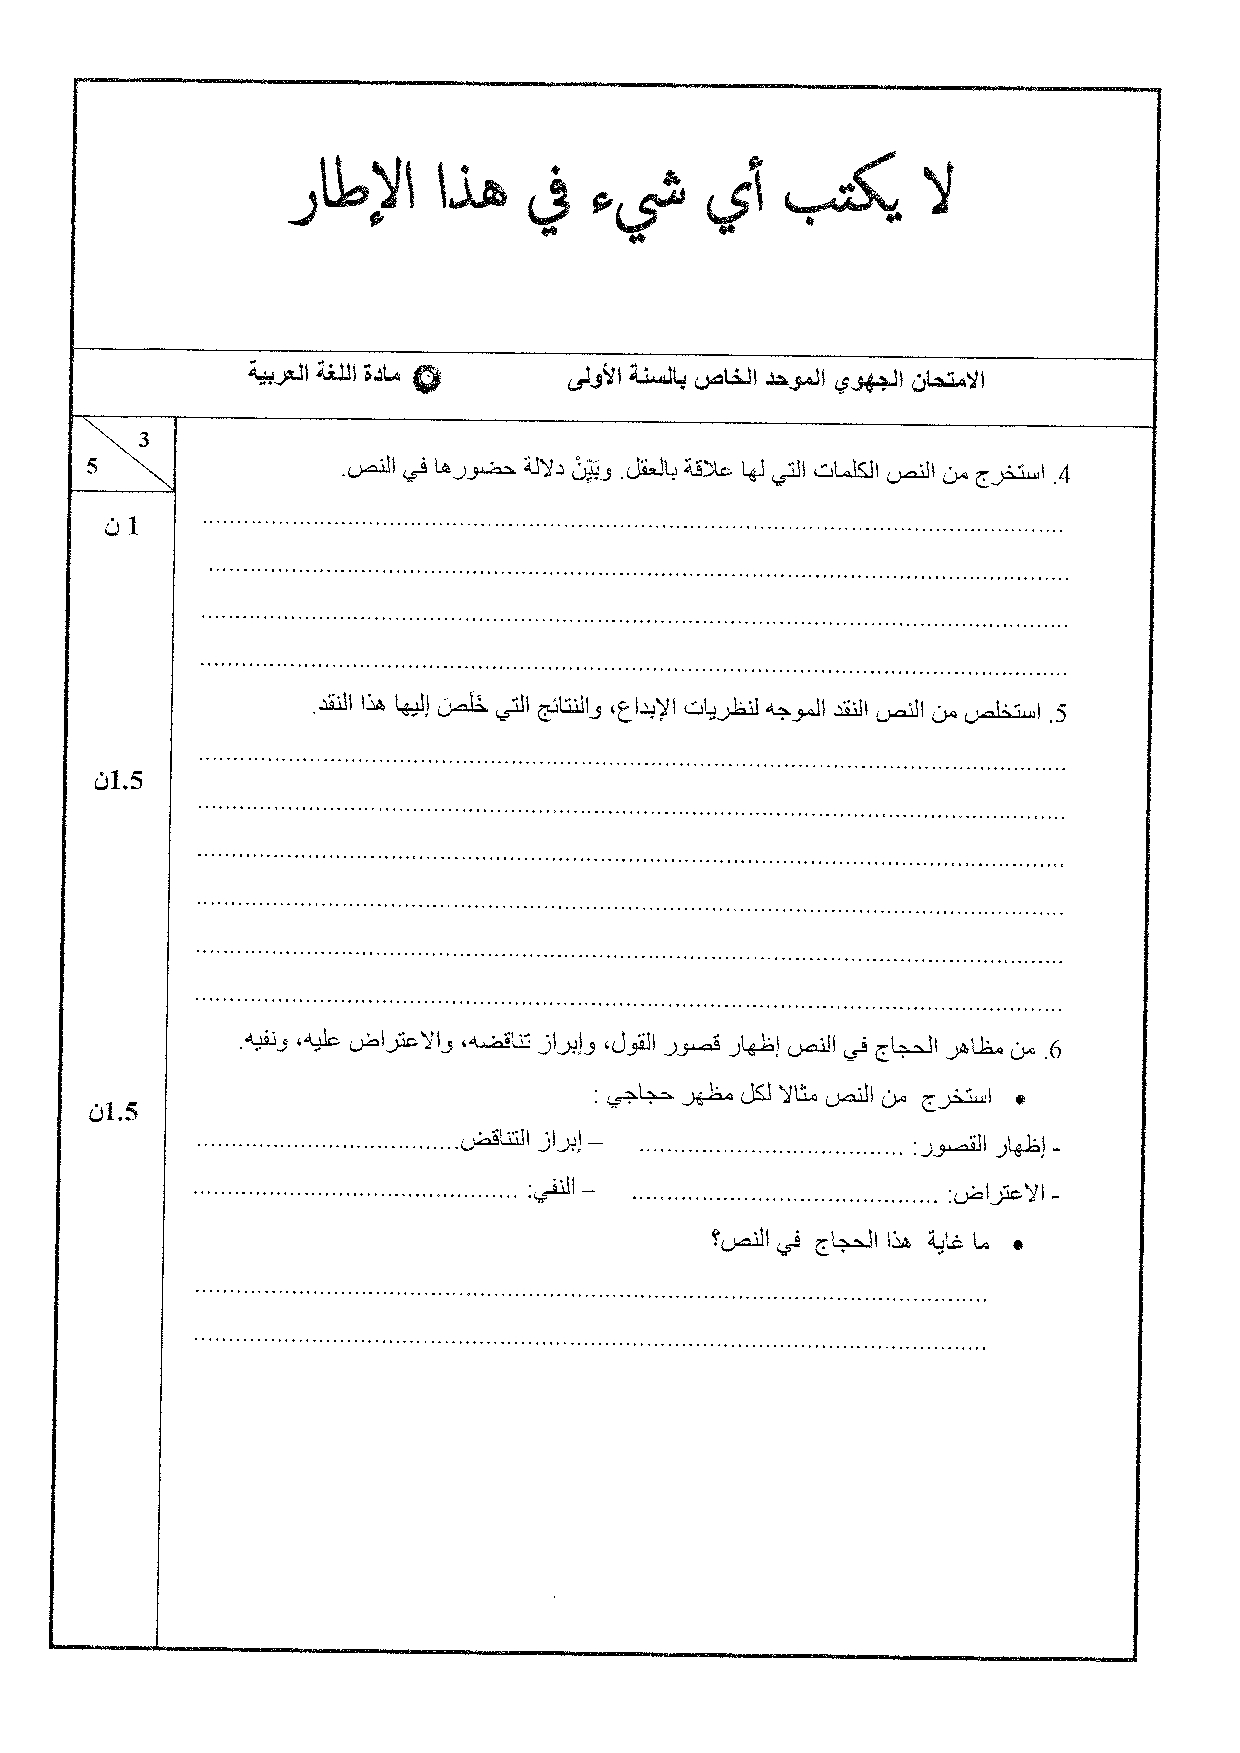 لا يكتب أي شيء في هذا الإطار
الامتحان الجهوي الموحد الخاص بالسنة الأولى مادة اللغة العربية
3
5
4. استخرج من النص الكلمات التي لها علاقة بالعقل. وبَيِّنْ دلالة حضورها في النص.
1 ن
5. استخلص من النص النقد الموجه لنظريات الإبداع، والنتائج التي خَلَصَ إليها هذا النقد.
1.5ن
6. من مظاهر الحجاج في النص إظهار قصور القول، وإبراز تناقضه، والاعتراض عليه، ونفيه.
• استخرج من النص مثالا لكل مظهر حجاجي :
1.5ن
- إظهار القصور: ...................................... – إبراز التناقض......................................
- الاعتراض: ............................................ – النفي: ...............................................
• ما غاية هذا الحجاج في النص؟